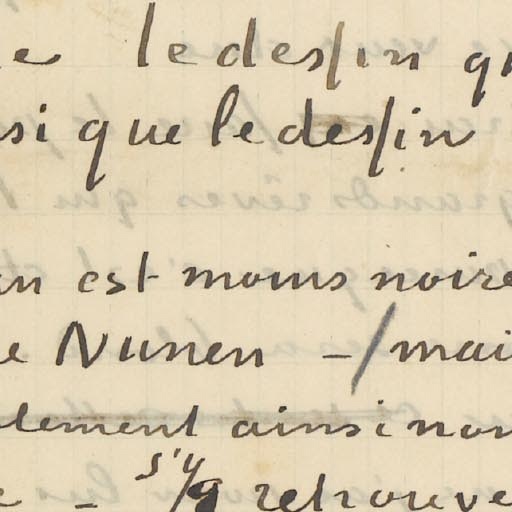 le dessin
si que le dessin
est moins noire
Nunen — / mai
lement ainsi non
s'y
— retrouve